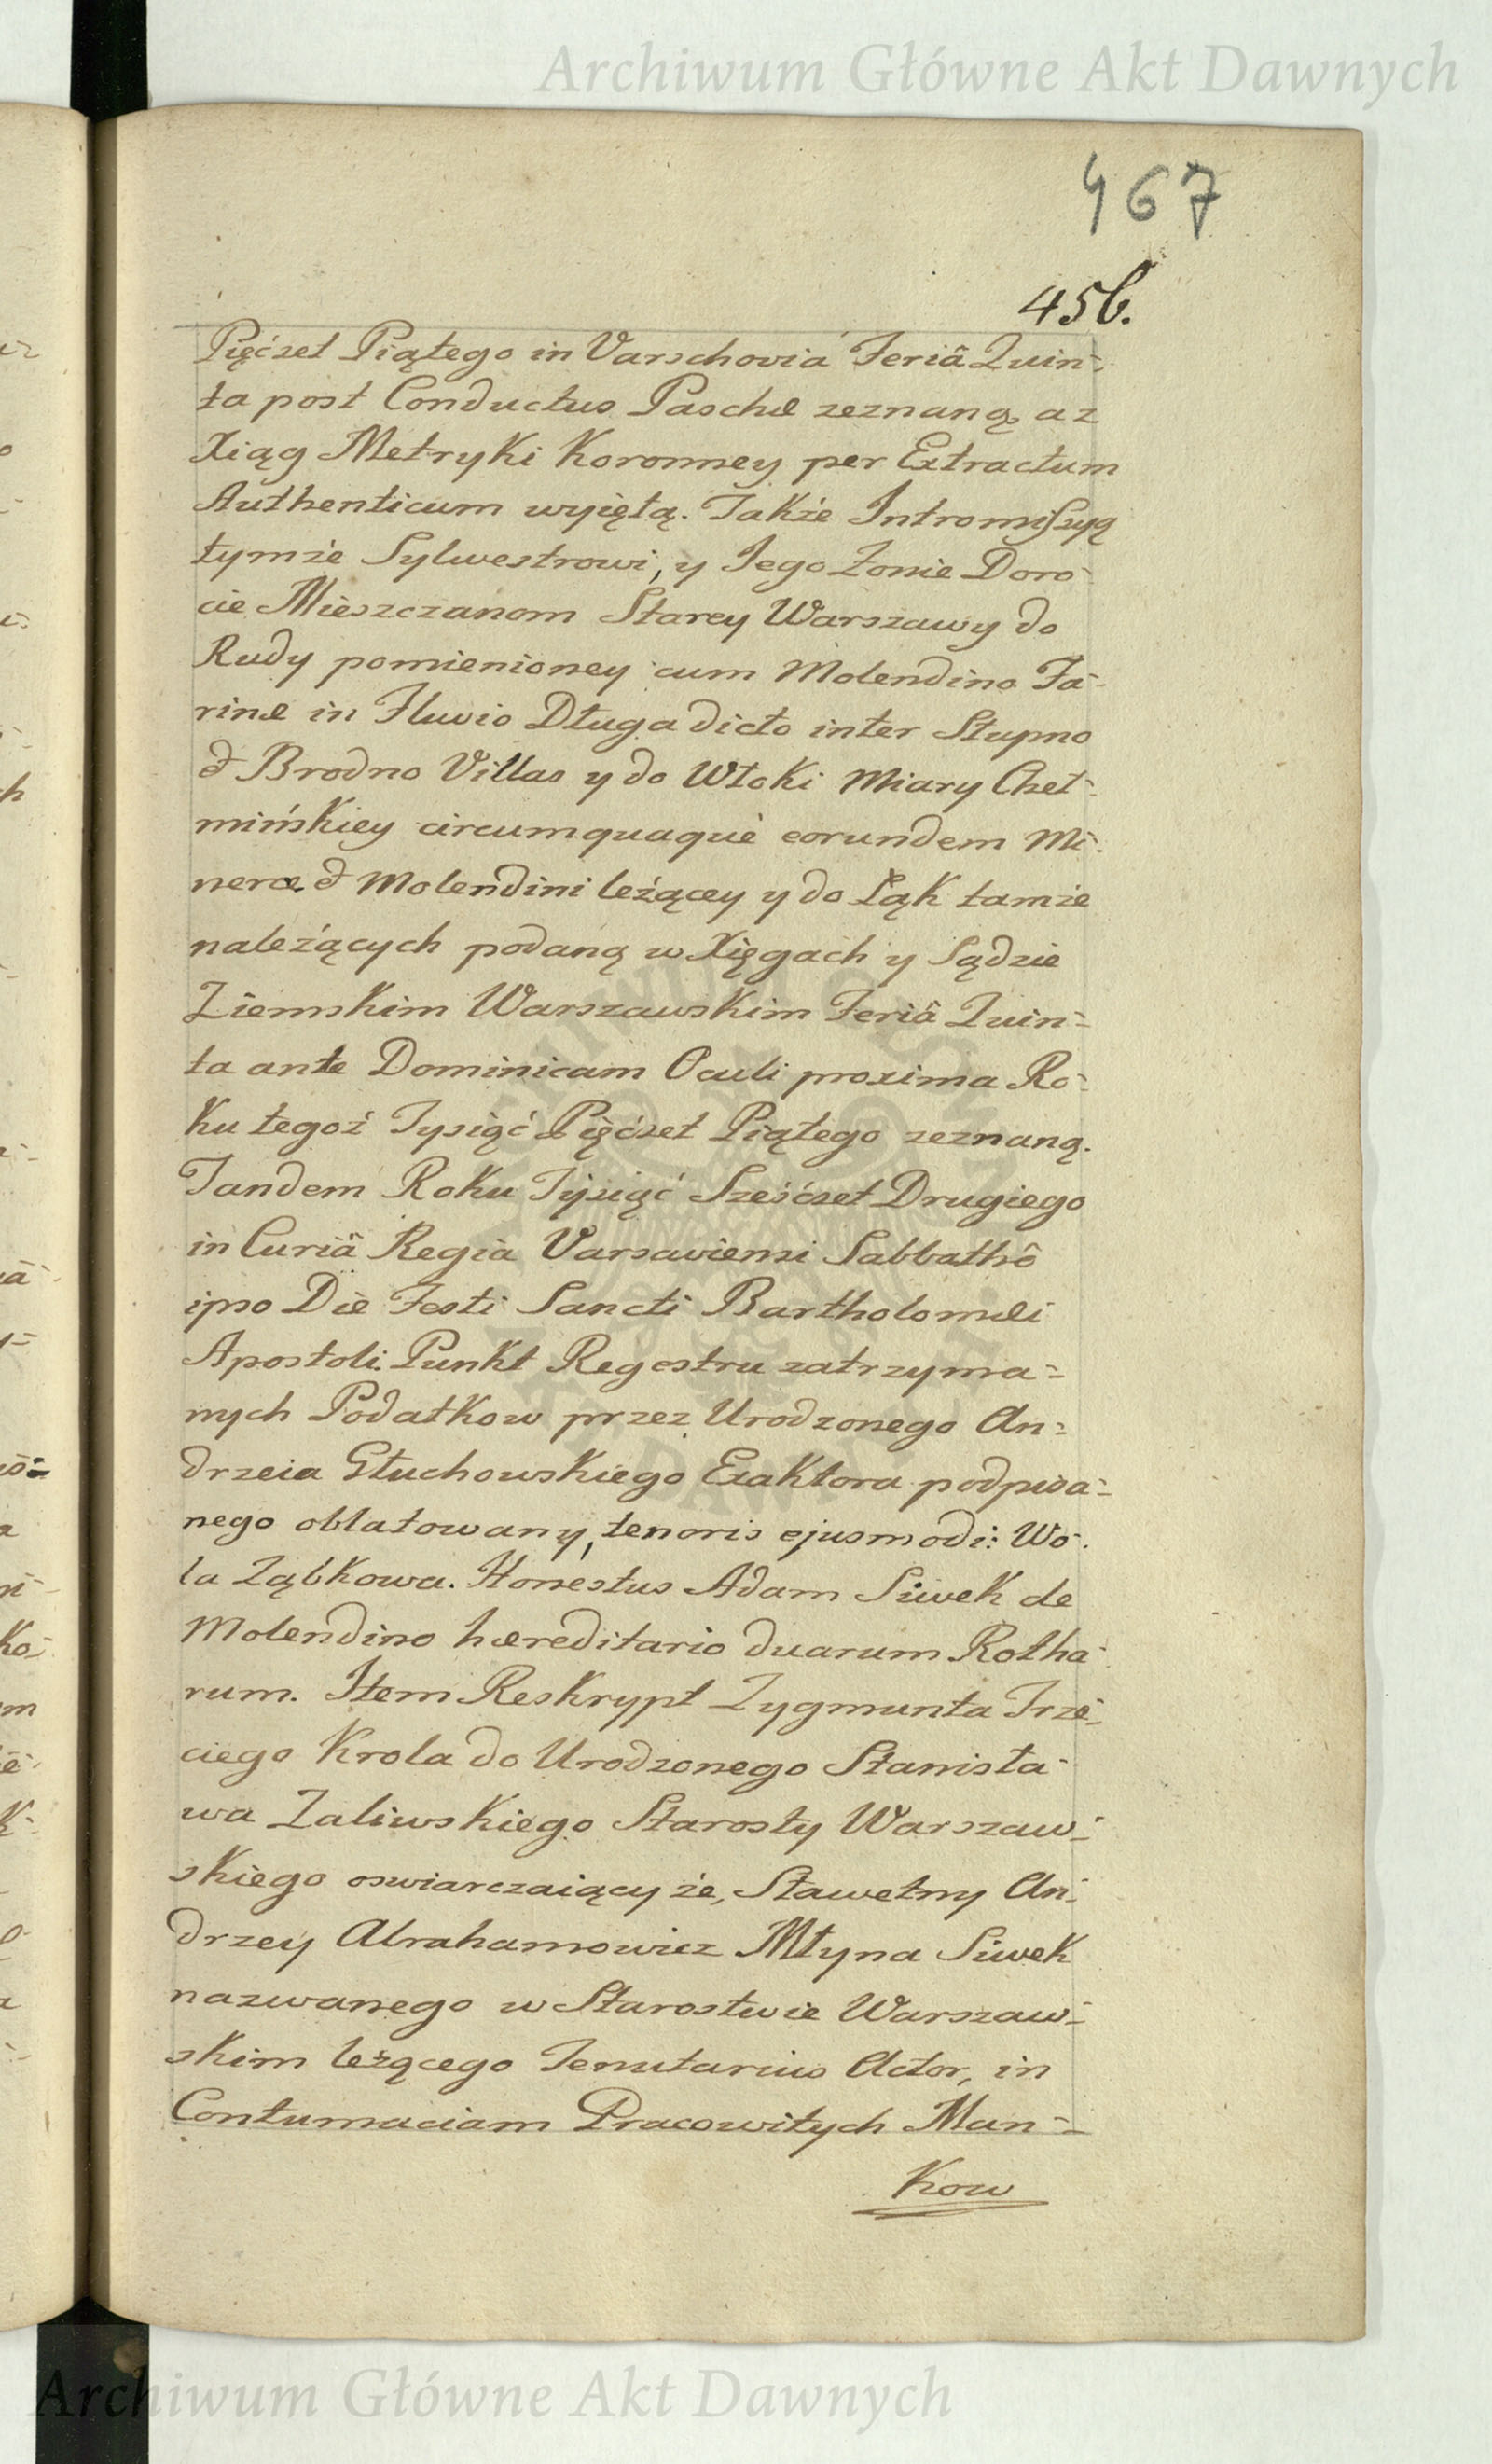 Archiwum Główne Akt Dawnych
467
456.
Pięćset Piątego in Varschovia Feriâ Quin=
ta post Conductus Paschæ zeznaną a z
Xiąg Metryki Koronney per Extractum
Authenticum wyiętą. Także Intromissyą
tymże Sylwestrowi, y Jego Żonie Doro=
cie Mieszczanom Starey Warszawy do
Rudy pomienioney cum Molendino Fa=
rinæ in Fluvio Długa dicto inter Słupno
& Brodno Villas y do Włoki Miary Cheł=
mińskiey circumquaquè eorundem Mi=
neræ & Molendini leżącey y do Łąk tamże
należących podaną w Xięgach y Sądzie
Ziemskim Warszawskim Feriâ Quin=
ta ante Dominicam Oculi proxima Ro=
ku tegoż Tysiąć Pięćset Piątego zeznaną.
Tandem Roku Tysiąć Sześćset Drugiego
in Curiâ Regia Varsaviensi Sabbathô
ipso Die Festi Sancti Bartholomæi
Apostoli. Punkt Regestru zatrzyma=
nych Podatkow przez Urodzonego An=
drzeia Głuchowskiego Exaktora podpisa=
nego oblatowany, tenoris ejusmodi: Wo=
la Ząbkowa. Honestus Adam Siwek de
Molendino hæreditario duarum Rotha=
rum. Item Reskrypt Zygmunta Trze=
ciego Krola do Urodzonego Stanisła=
wa Zaliwskiego Starosty Warszaw=
skiego oswiarczaiący że, Sławetny An=
drzey Abrahamowicz Młyna Siwek
nazwanego w Starostwie Warszaw=
skim leżącego Tenutarius Actor, in
Contumaciam Pracowitych Man=
kow
Archiwum Główne Akt Dawnych